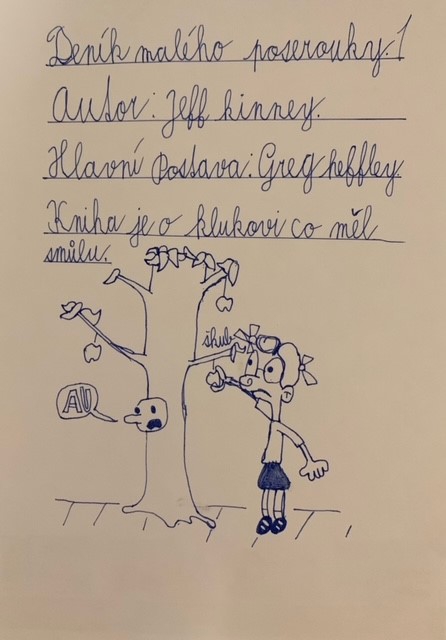 Deník malého poserouky. 1
Autor: Jeff kinney.
Hlavní Postava: Greg heffley.
Kniha je o klukovi co měl
smůlu.
škub
AU